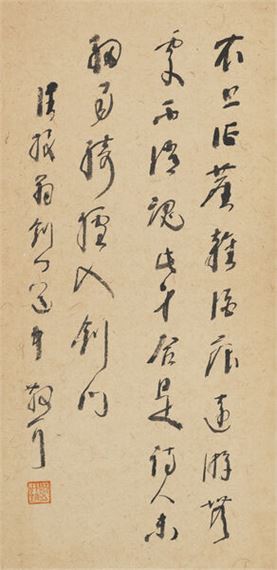 衣上征塵雜酒痕遠游無
處不消魂此身合是詩人未
細雨騎驢入劍門
陸放翁劍門道中